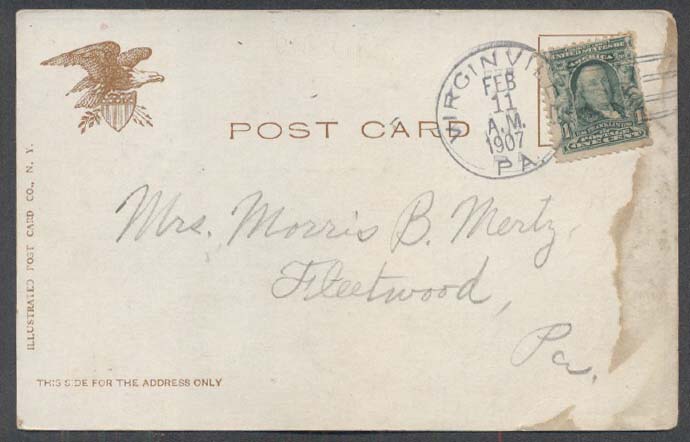 POST CARD
VIRGINVILLE
FEB
11
A.M.
1907
PA.
UNITED STATES OF
AMERICA
1 FRANKLIN 1
POSTAGE
ONE CENT
ILLUSTRATED POST CARD CO., N. Y.
Mrs. Morris B. Mertz,
Fleetwood,
Pa.
THIS SIDE FOR THE ADDRESS ONLY